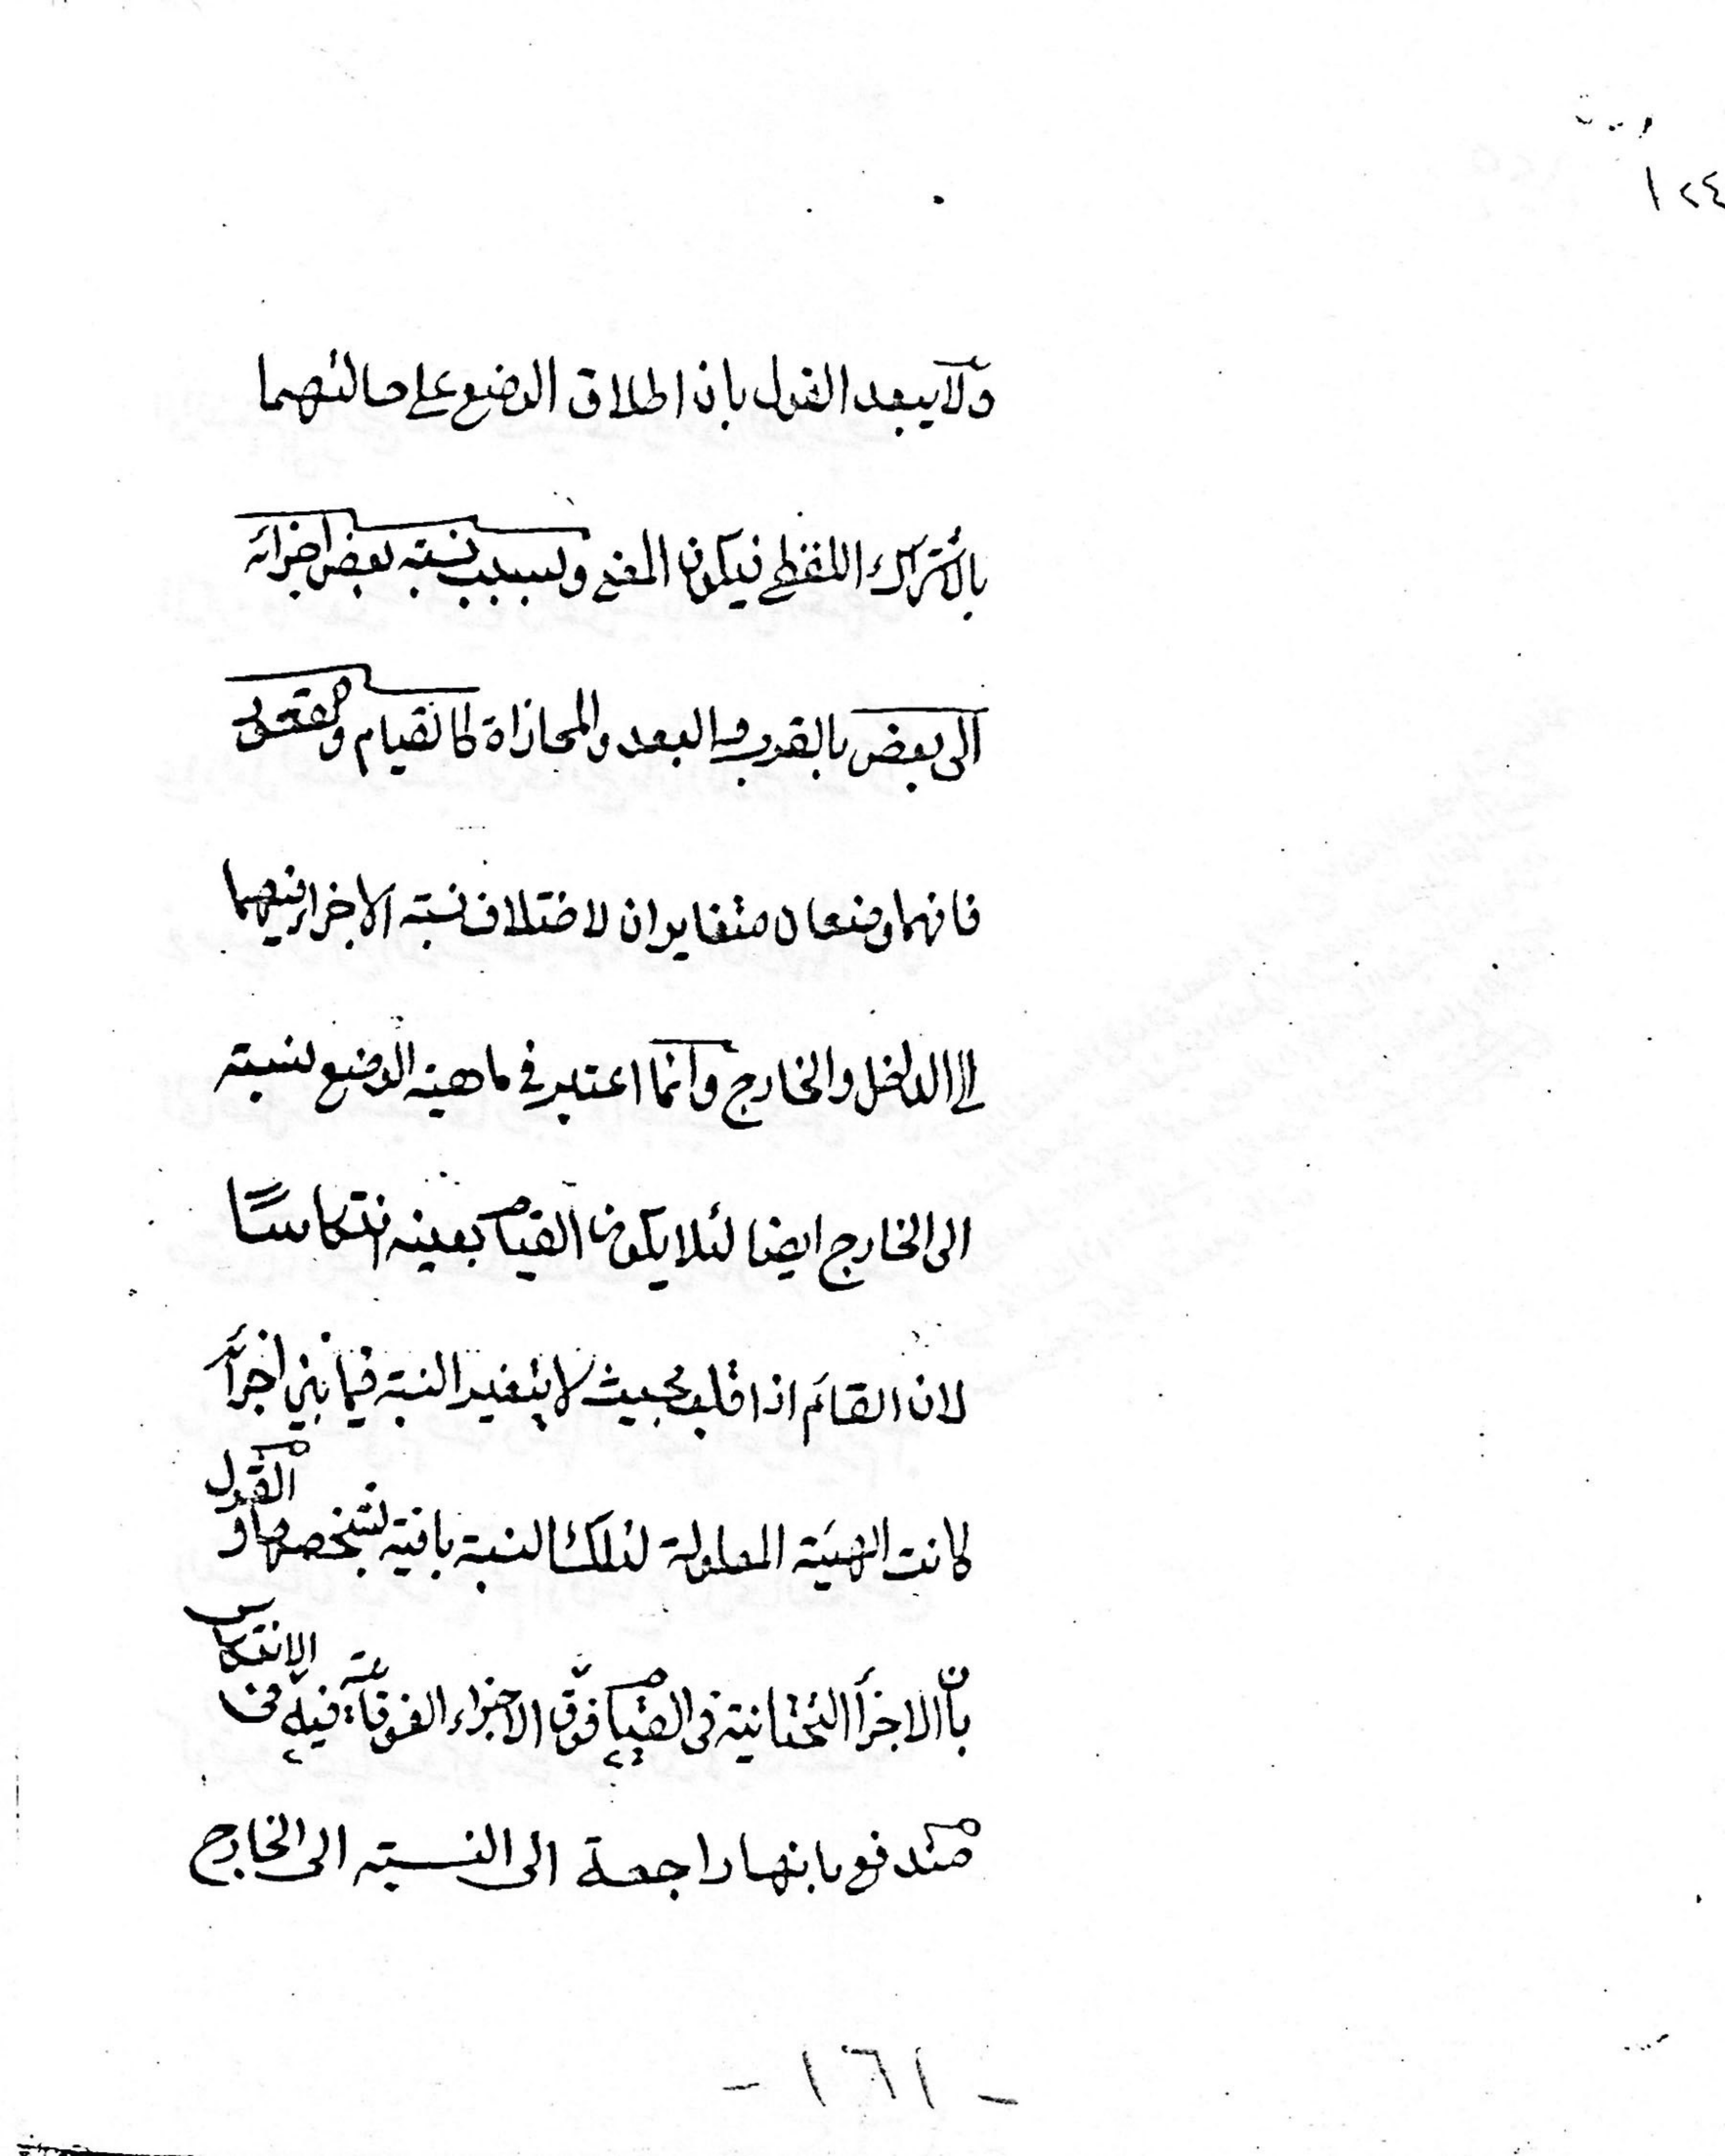 ١٢٤
ولا يبعد القول بان اطلاق الوضع على حالتهما
بالاشتراك اللفظى فيكون المعنى وبسبب نسبة بعض اجزائه
الى بعض بالقرب والبعد والمحاذاة كالقيام والقعود
فانهما وضعان متغايران لاختلاف نسبة الاجزاء فيهما
الى الداخل والخارج وانما اعتبر فى ماهية الوضع لنسبة
الى الخارج ايضا لئلا يكون القيام بعينه انتكاسًا
لان القائم اذا قلب بحيث لا يتغير النسبة فيما بين اجزائه
كانت الهيئة المعلولة لتلك النسبة باقية بشخصها والقول
بأن الاجزأ التحتانية فى القيام فوق الاجزاء الفوقانية فيه فى الانتكاس
مندفع بانها راجعة الى النسبة الى الخارج
- ١٦١ -